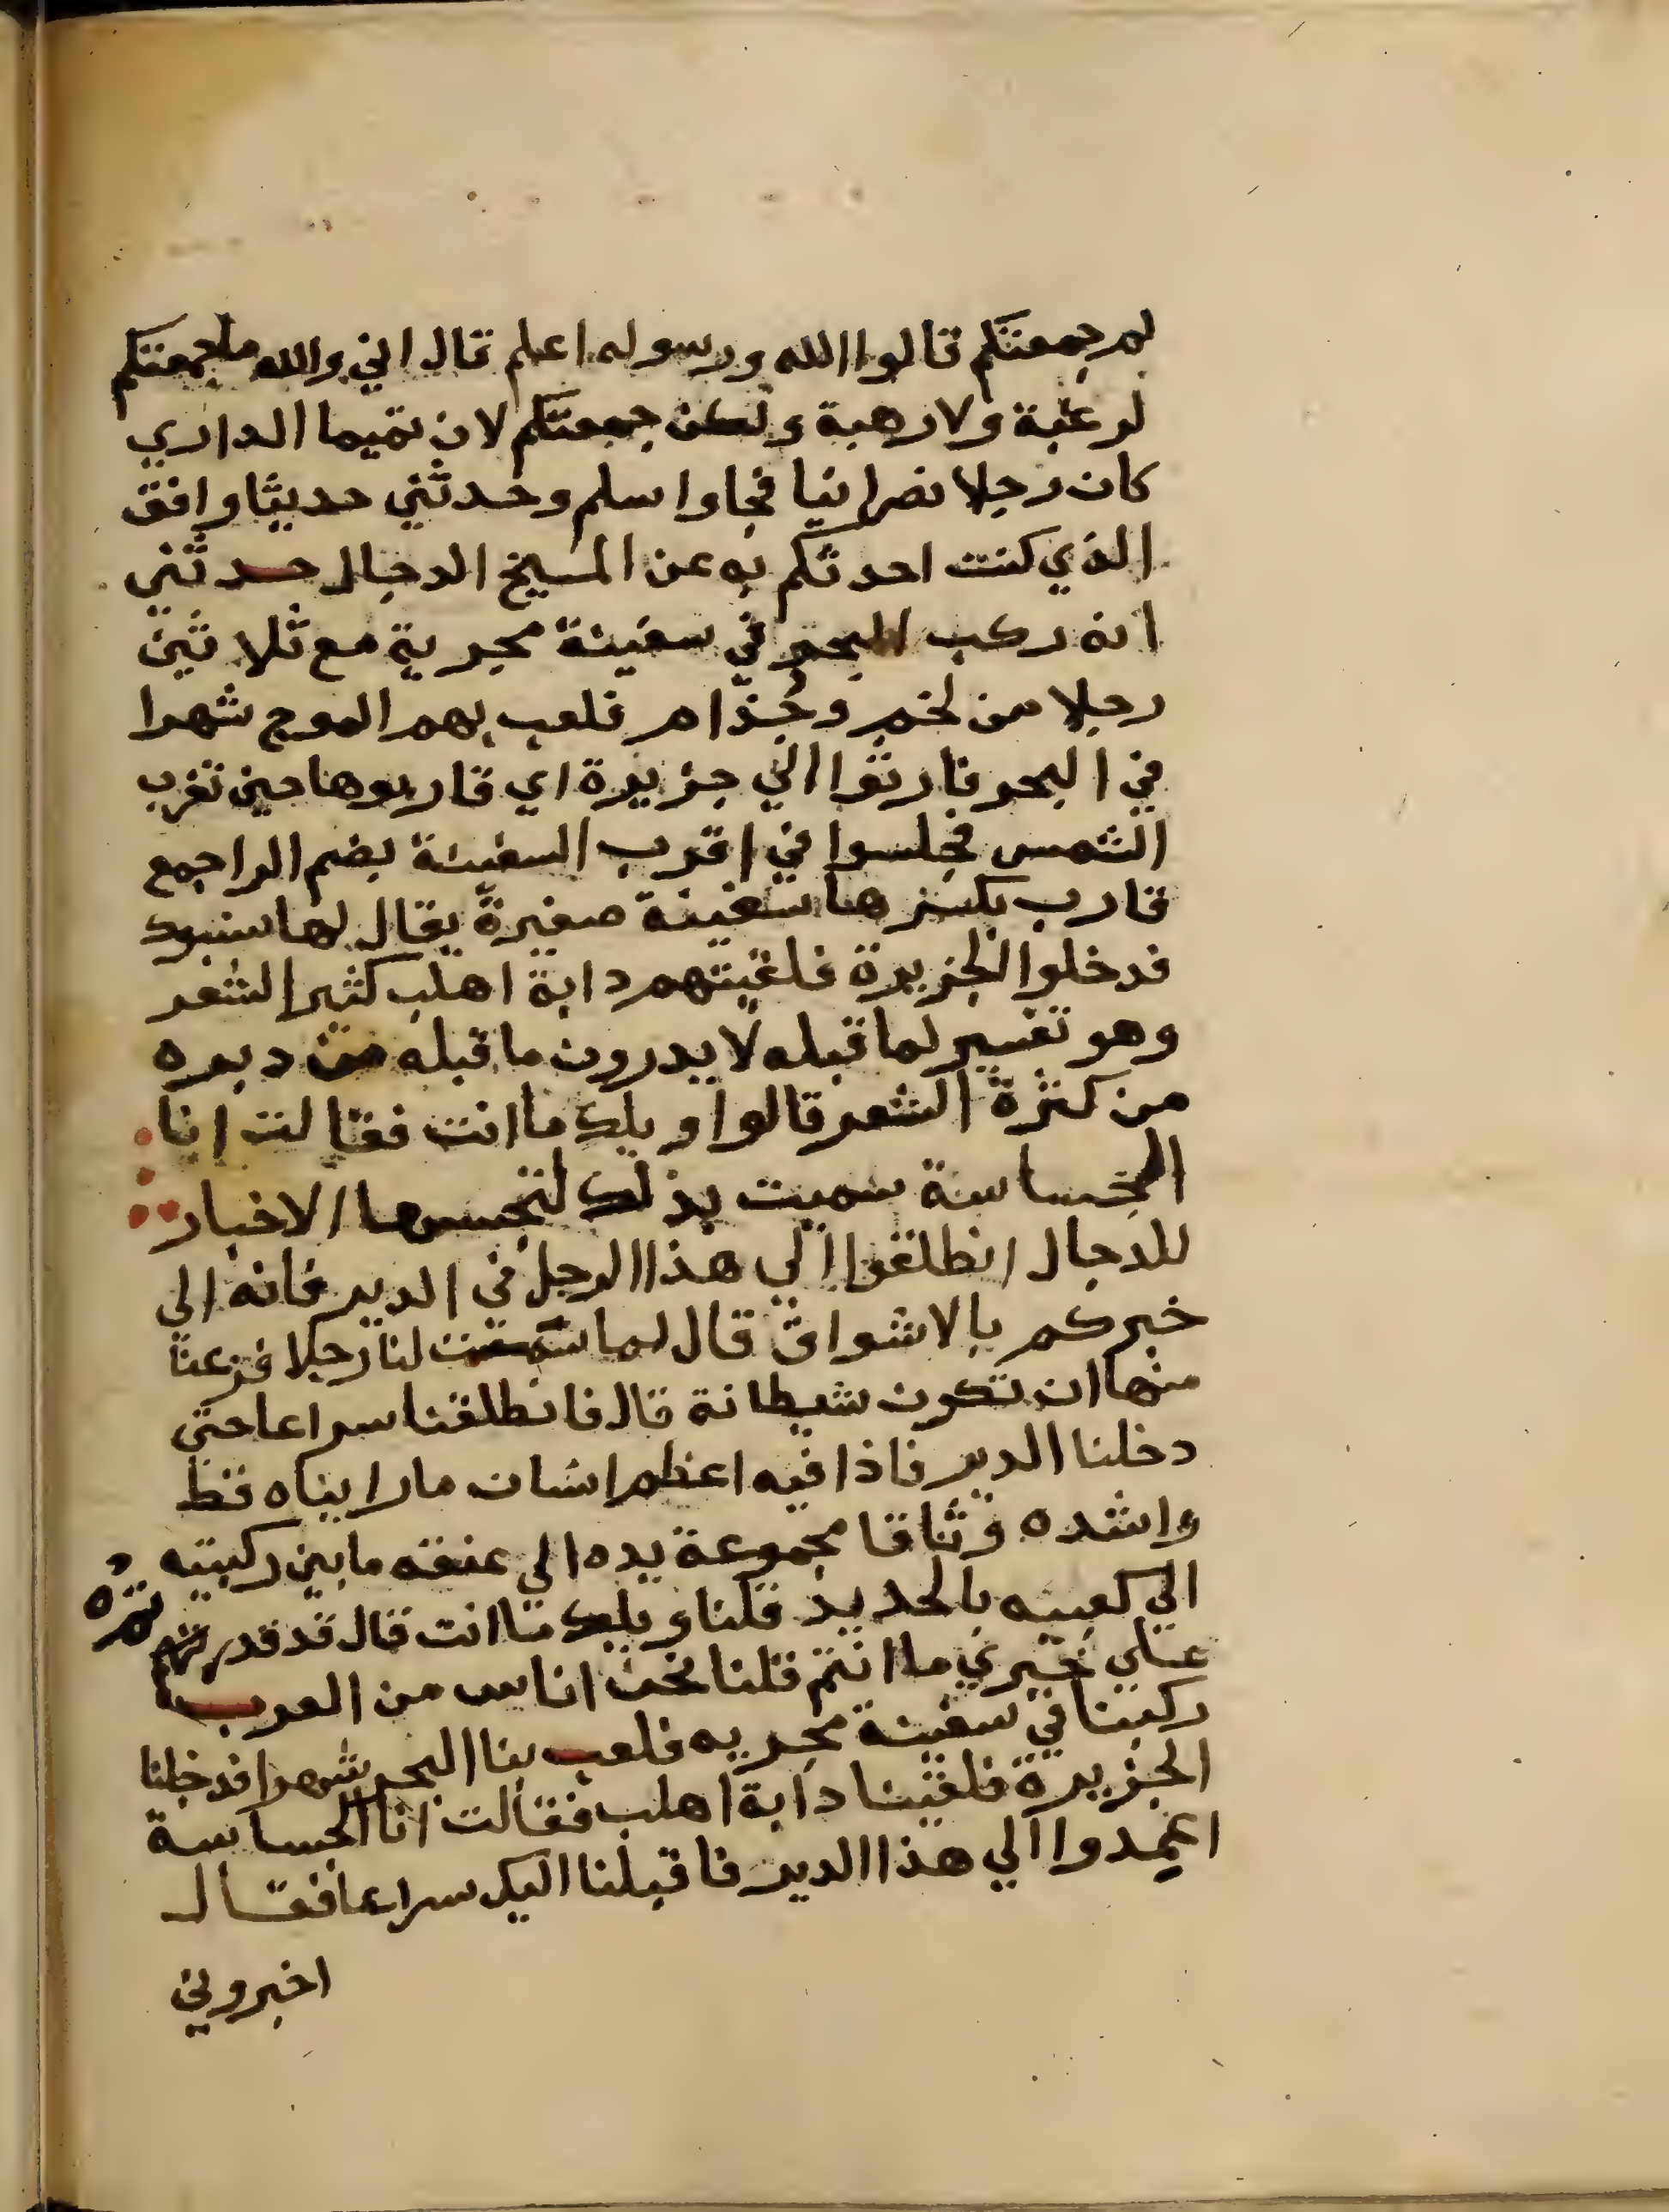 لم جمعتكم قالوا الله ورسوله اعلم قال اني والله ما جمعتكم
لرغبة ولا رهبة ولكن جمعتكم لان تميما الداري
كان رجلا نصرانيا فجا واسلم وحدثني حديثا وافق
الذي كنت احدثكم به عن المسيخ الدجال حدثني
انه ركب البحر في سفينة بحرية مع ثلاثين
رجلا من لخم وجذام فلعب بهم الموج شهرا
في البحر فارتقوا الي جزيرة اي قاربوها حين تغرب
الشمس فجلسوا في اقرب السفينة بضم الراجمع
قارب بكسرها سفينة صغيرة يقال لها سنبود
فدخلوا الجزيرة فلقيتهم دابة اهلب كثير الشعر
وهو تفسير لما قبله لا يدرون ما قبله من دبره
من كثرة الشعر قالوا ويلك ما انت فقالت انا
الجساسة سميت بذلك لتجسسها الاخبار
للدجال انطلقوا الي هذا الرجل في الدير فانه الي
خبركم بالاشواق قال لما سمت لنا رجلا فزعنا
منها ان تكون شيطانة قال فانطلقنا سراعا حتي
دخلنا الدير فاذا فيه اعظم انسان ما رايناه قط
واشده وثاقا مجموعة يده الي عنقه ما بين ركبتيه
الي كعبيه بالحديد قلنا ويلك ما انت قال قد قدرتم
علي خبري ما انتم قلنا نحن اناس من العرب
ركبنا في سفينة بحريه فلعب بنا البحر شهرا فدخلنا
الجزيرة فلقيتنا دابة اهلب فقالت انا الجساسة
اعمدوا الي هذا الدير فاقبلنا اليك سراعا فقال
اخبروني